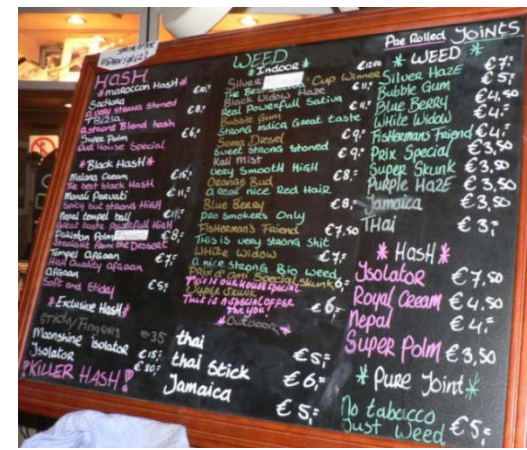 HASH
*MAROCCON HASH*
Sachara €10,-
a very strong stoned
TBizla. €8,-
a strong Blond hash
Super Polm €6,-
Our House Special
*Black Hash*
Malana Cream €15,-
The best black Hash
Manali Parvati €11,-
Spicy but strong High
Nepal tempel ball €11,-
Great taste Powerfull High
Pakistan Polm €8,-
Straight from the Dessert
Tempel Afgaan €7,-
High Quality afgaan
Afgaan €5,-
Soft and Sticky
*Exclusive Hash*
Sticky Fingers €35
Moonshine isolator €15,-
Isolator €20,-
!KILLER HASH!
WEED
*Indoor*
Silver Cup Winner €12,00
The Best
Black Widow Haze €11,-
Real Powerfull Sativa
Bubble Gum €11,-
Strong indica Great taste
Soma Diesel €9,-
Sweet strong stoned
Kali Mist €9,-
Very Smooth High
Orange Bud €8,-
a real nice Red Hair
Blue Berry €8,-
pro smokers Only
Fisherman's Friend €7,50
This is very strong shit
White Widow €7,-
a nice strong Bio weed
Prix d'ami Special skunk 6,-
This is our house special
Super Skunk €6,-
This is a special offer
for you!
*Outdoor*
thai €5,-
thai stick €6,-
Jamaica €5,-
Pre Rolled JOINTS
* WEED *
Silver Haze €7,-
Bubble Gum €5,-
Blue Berry €4,50
White Widow €4,-
Fishermans Friend €4,-
Prix Special €3,50
Super Skunk €3,50
Purple Haze €3,50
Jamaica €3,50
THai €3,-
* Hash *
Isolator €7,50
Royal Cream €4,50
Nepal €4,-
Super Polm €3,50
* Pure Joint *
No tabacco
Just Weed €5,-